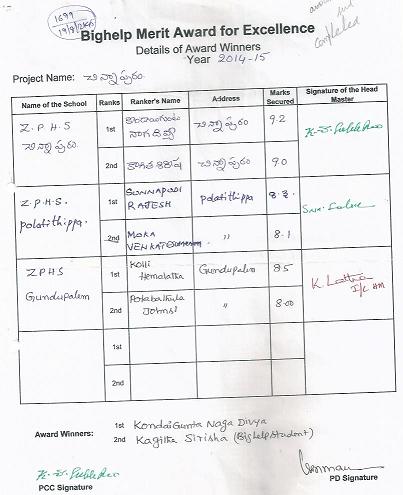 1699
19/8/2015
Bighelp Merit Award for Excellence
Details of Award Winners
Year 2014-15
Project Name: చిన్నాపురం
Name of the School Ranks Ranker's Name Address Marks Secured Signature of the Head Master
Z.P.H.S చిన్నాపురం 1st కొండాయిగుంట నాగదివ్య చిన్నాపురం 9.2
2nd కాగిత శిరీష చిన్నాపురం 9.0
Z.P.H.S. Polatithippa. 1st SUNNAPUDI RAJESH Polatithippa 8.3.
2nd MOKA VENKATESWARARAO " 8.1
ZPHS Gundupalem 1st Kolli Hemalatha Gundupalem 8.5 K. Latha I/c HM
2nd " 8.00
1st
2nd
Award Winners: 1st Kondaigunta Naga Divya
2nd Kagitha Sirisha (Bighelp student)
PCC Signature PD Signature